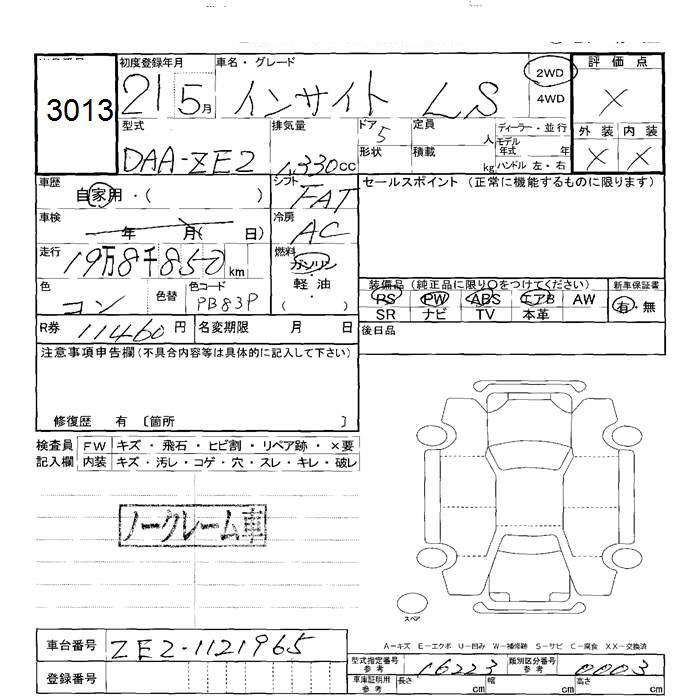 3013 初度登録年月 車名・グレード 2WD 評価点
21 5月 インサイト LS 4WD ×
型式 排気量 ドア 5 定員 人 ディーラー・並行 外装 内装
DAA-ZE2 1,330cc 形状 積載 kg モデル年式 年 ハンドル 左・右 × ×
車歴 自家用・( ) シフト FAT セールスポイント (正常に機能するものに限ります)
車検 年 月( 日) 冷房 AC
走行 19万8千850km 燃料 ガソリン
色 コン 色替 色コード PB83P 軽油・( ) 装備品 (純正品に限り○をつけてください) 新車保証書
PS PW ABS エアB AW 有・無
SR ナビ TV 本革
R券 11460円 名変期限 月 日 後日品
注意事項申告欄(不具合内容等は具体的に記入して下さい)
修復歴 有 〔箇所 〕
検査員 FW キズ・飛石・ヒビ割・リペア跡・×要
記入欄 内装 キズ・汚レ・コゲ・穴・スレ・キレ・破レ
ノークレーム車
スペア
A-キズ E-エクボ U-凹み W-補修跡 S-サビ C-腐食 XX-交換済
車台番号 ZE2-1121965 型式指定番号 参考 16223 類別区分番号 参考 0003
登録番号 車庫証明用 参考 長さ cm 幅 cm 高さ cm